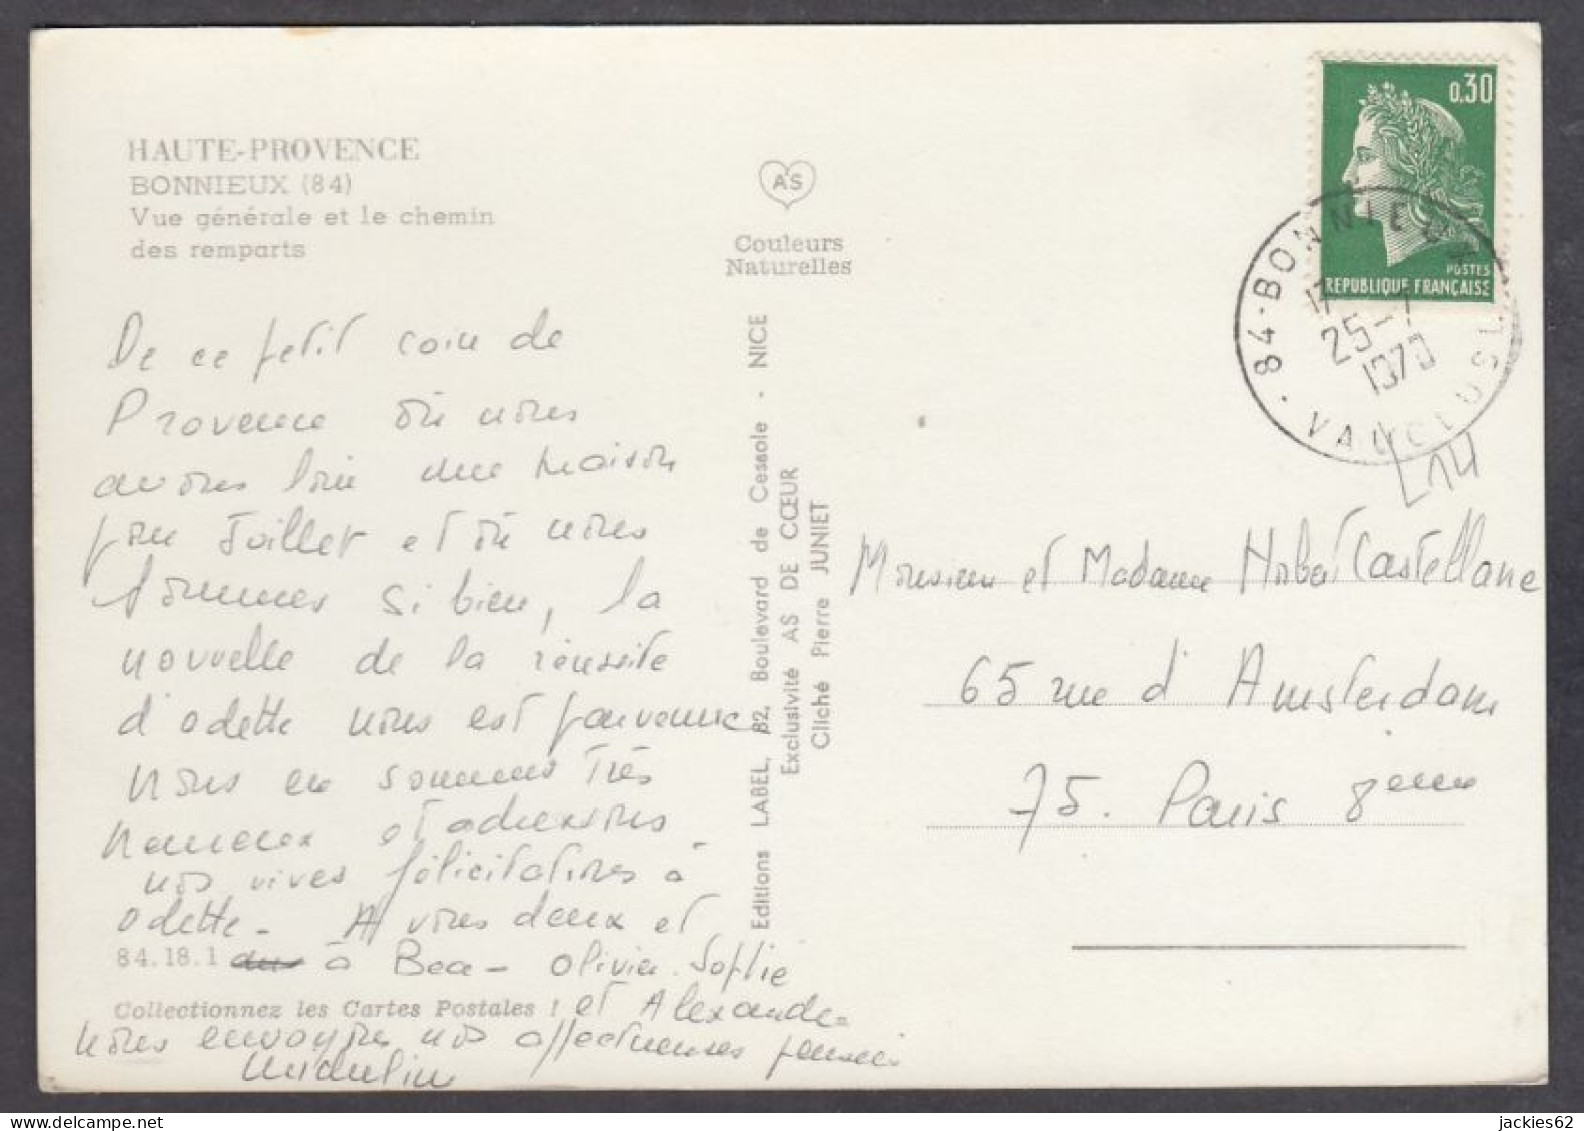 HAUTE-PROVENCE
BONNIEUX (84)
Vue générale et le chemin
des remparts
AS
Couleurs
Naturelles
De ce petit coin de
Provence où nous
avons loué une maison
pour Juillet et où nous
sommes si bien, la
nouvelle de la réussite
d'odette nous est parvenue
nous en sommes très
heureux et adressons
nos vives félicitations à
odette - A vous deux et
84.18.1 à Bea - Olivier. Sophie
Collectionnez les Cartes Postales ! et Alexandre
nous envoyons nos affectueuses pensées
Editions LABEL, 82, Boulevard de Cessole - NICE
Exclusivité AS DE CŒUR
Cliché Pierre JUNIET
0,30
POSTES
REPUBLIQUE FRANÇAISE
84-BONNIEUX
17
25-7
1970
VAUCLUSE
L14
Monsieur et Madame Castellane
65 rue d'Amsterdam
75. Paris 8eme
jackies62